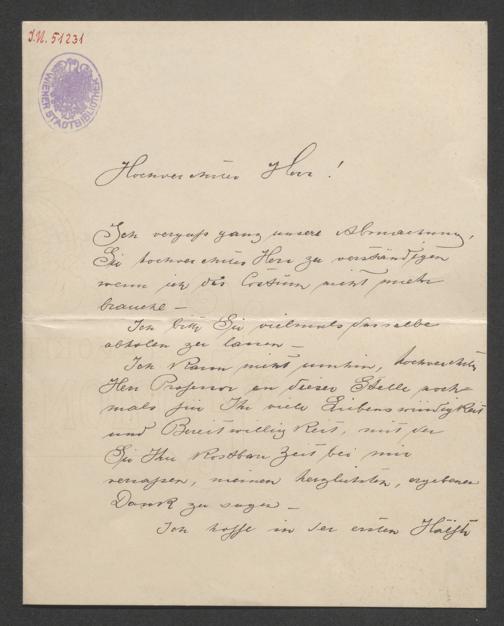 I.N. 51231
WIENER STADTBIBLIOTHEK
Hochverehrter Herr!
Ich vergaß ganz unsere Abmachung,
Sie hochverehrter Herr zu verständigen
wenn ich das Costüm nicht mehr
brauche –
Ich bitte Sie vielmals dasselbe
abholen zu lassen –
Ich kann nicht umhin, hochverehrter
Herr Professor an dieser Stelle noch-
mals für Ihr viele Liebenswürdigkeit
und Bereitwilligkeit, mit der
Sie Ihre kostbare Zeit bei mir
, meinen herzlichsten, ergebenen
Dank zu sagen –
Ich hoffe in der ersten Hälfte